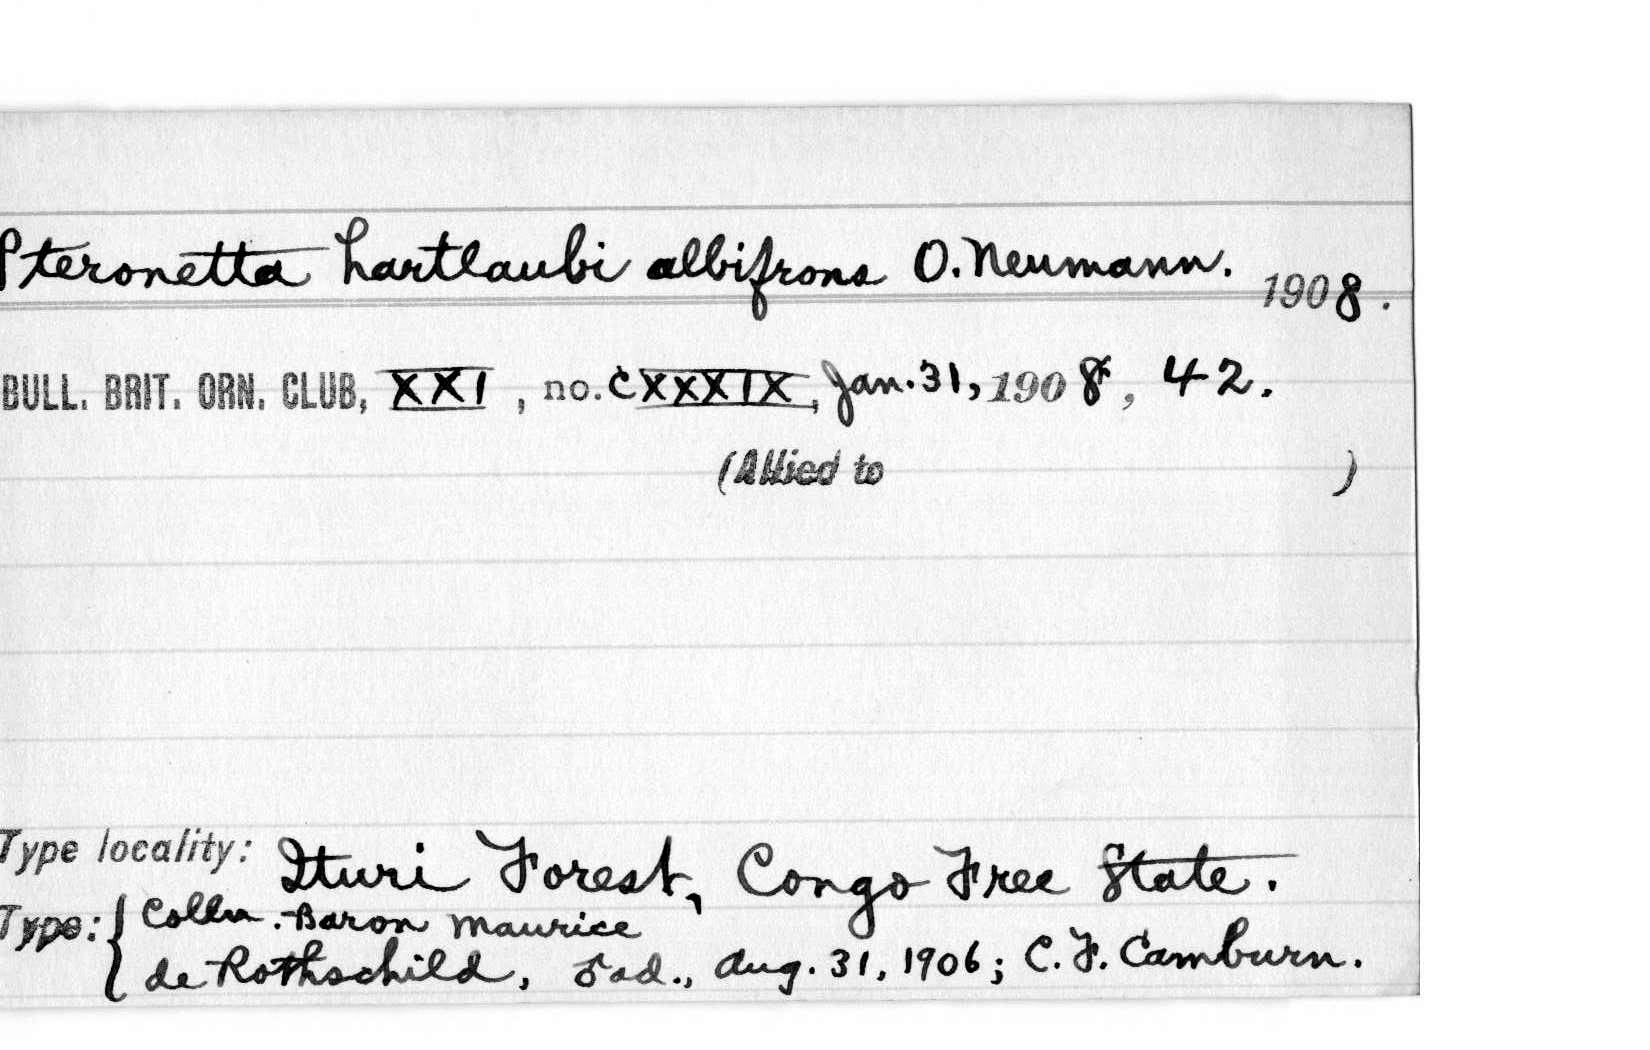 Pteronetta hartlaubi albifrons O. Neumann. 1908.
BULL. BRIT. ORN. CLUB, XXI, no. CXXXIX, Jan. 31, 1908, 42.
(Allied to )
Type locality: Ituri Forest, Congo Free State.
Type: { Colln. Baron Maurice
de Rothschild, ♂ ad., Aug. 31, 1906; C. F. Camburn.